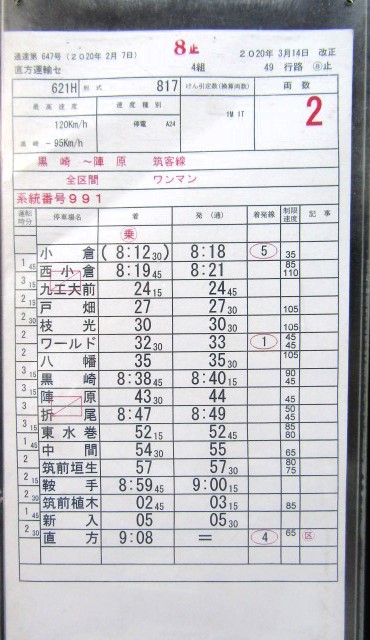 8止
達達第 647号 (2020年 2月 7日) 2020年 3月14日 改正
直方運輸セ 4組 49 行路 ⑧止
621H 形式 817 けん引定数(換算両数) 両数
最高速度 速度種別 1M 1T 2
120Km/h 停電 A24
黒崎 -95Km/h
黒崎 ~陣原 筑客線
全区間 ワンマン
系統番号991
運転時分 停車場名 着 発 (通) 着発線 制限速度 記事
乗
小倉 (8:12 30) 8:18 5 35
1 45 西小倉 8:19 45 8:21 85 110
3 15 九工大前 24 15 24 45
2 15 戸畑 27 27 30 105
2 30 枝光 30 30 30 105
2 ワールド 32 30 33 1 45 45
2 八幡 35 35 30 105
3 15 黒崎 8:38 45 8:40 15 90 45
3 15 陣原 43 30 44 45
3 折尾 8:47 8:49 50 45
3 15 東水巻 52 15 52 45 85 80
1 45 中間 54 30 55 65
2 筑前垣生 57 57 30 80 75
2 15 鞍手 8:59 45 9:00 15
2 30 筑前植木 02 45 03 15 85
1 45 新入 05 05 30
2 30 直方 9:08 = 4 65 区